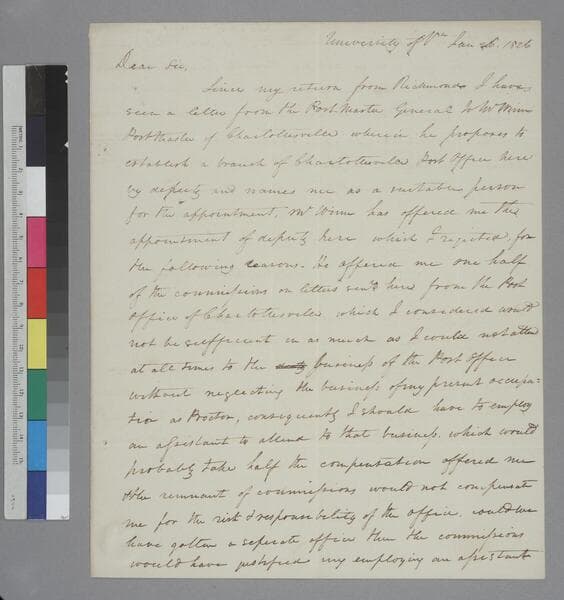 University of Va Jan 26. 1826
Dear Sir,
Since my return from Richmond I have
seen a letter from the Post Master General to Mr Winn
Post Master of Charlottesville wherein he proposes to
establish a branch of Charlottesville Post Office here
by deputy and names me as a suitable person
for the appointment, Mr Winn has offered me the
appointment of deputy here which I rejected for
the following reasons. He offered me one half
of the commissions on letters sent here from the Post
Office of Charlottesville, which I considered would
not be sufficient in as much as I could not attend
at all times to the business of the Post Office
without neglecting the business of my present occupa-
tion as Proctor, consequently I should have to employ
an assistant to attend to that business, which would
probably take half the compensation offered me
& the remnant of commissions would not compensate
me for the risk & responsibility of the office, could we
have gotten a seperate office then the commissions
would have justified my employing an assistant